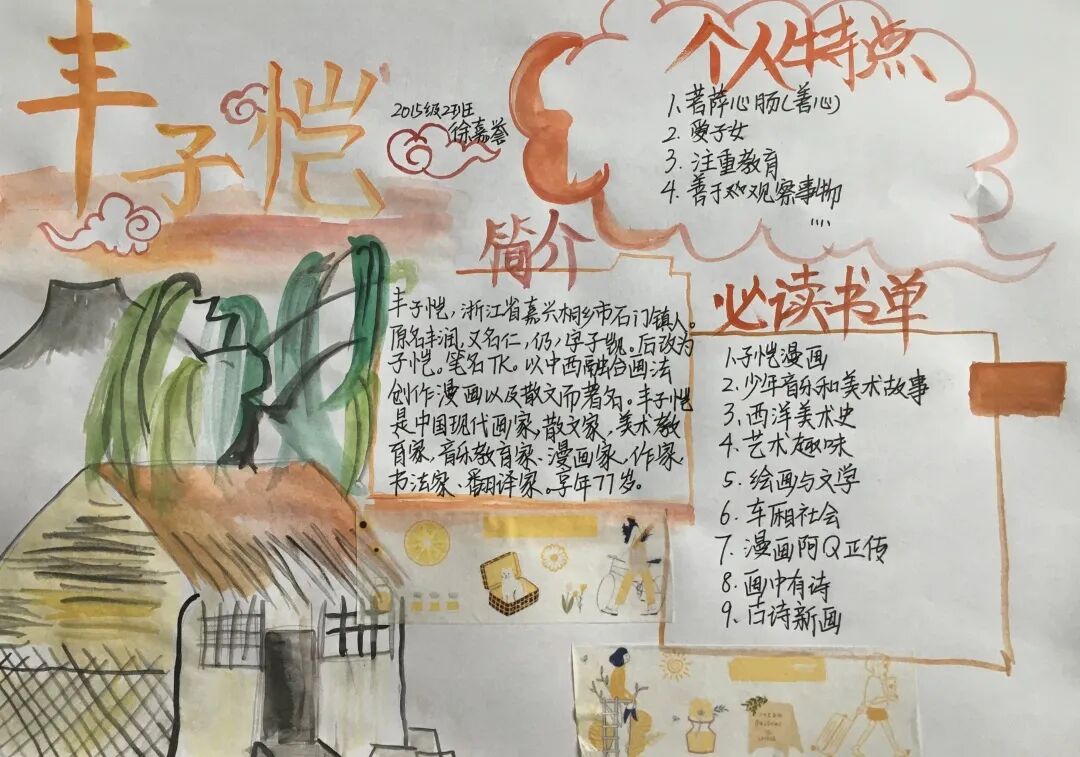 丰子恺
2015级2班
徐嘉誉
个人特点
1、菩萨心肠(善心)
2、爱子女
3、注重教育
4、善于观察事物
....
简介
丰子恺,浙江省嘉兴桐乡市石门镇人。
原名丰润,又名仁,仍,字子觊。后改为
子恺。笔名TK。以中西融合画法
创作漫画以及散文而著名。丰子恺
是中国现代画家、散文家、美术教
育家、音乐教育家、漫画家、作家、
书法家、翻译家。享年77岁。
必读书单
1.子恺漫画
2.少年音乐和美术故事
3.西洋美术史
4.艺术趣味
5.绘画与文学
6.车厢社会
7.漫画阿Q正传
8.画中有诗
9.古诗新画